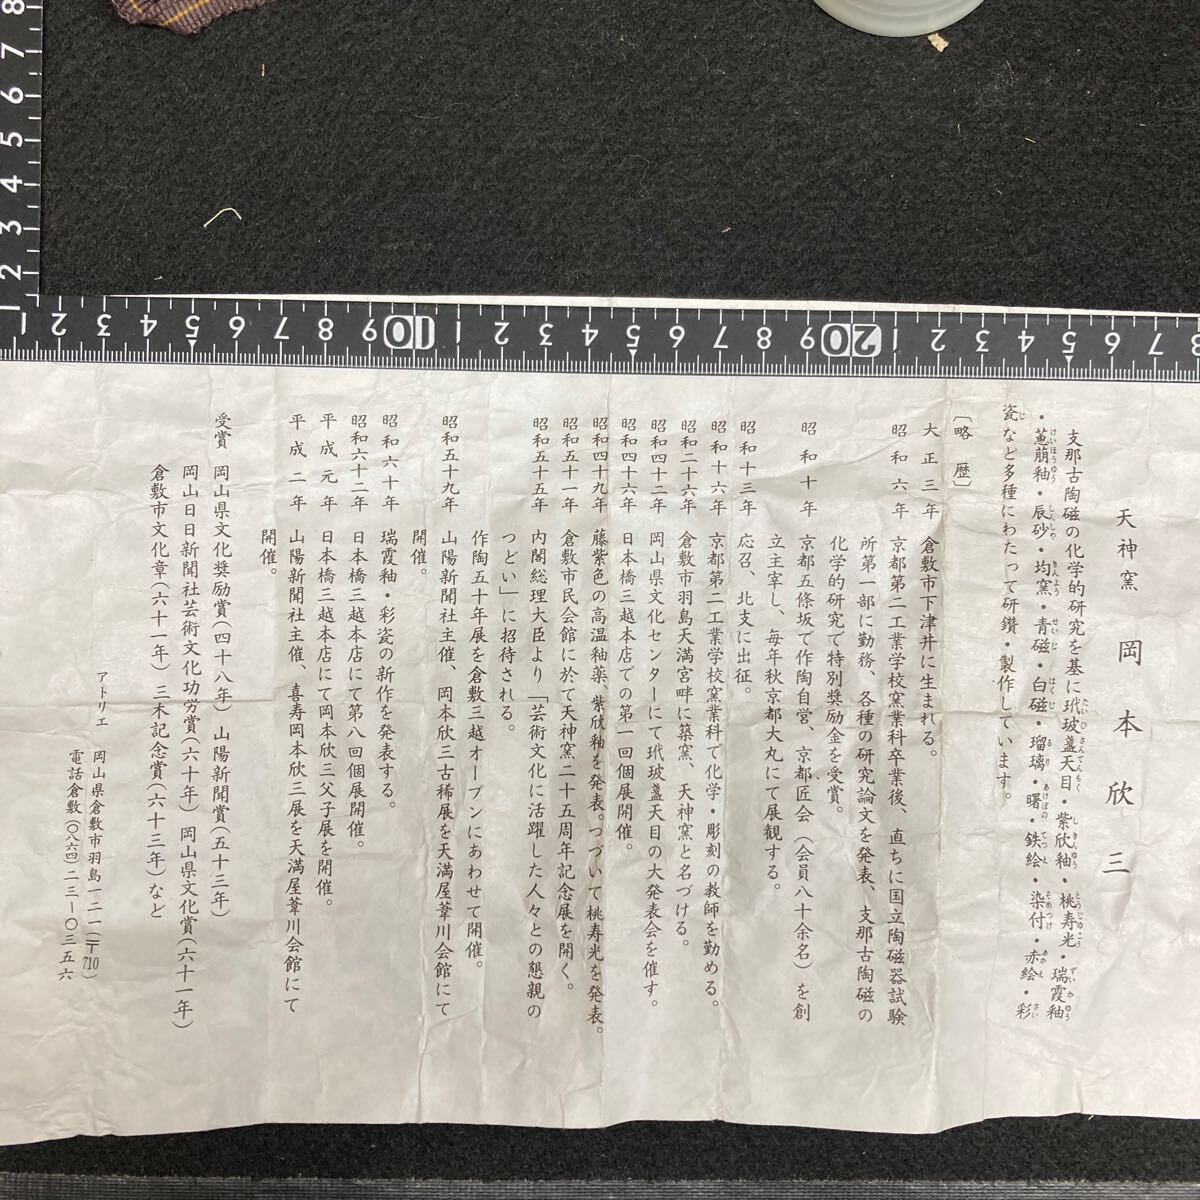 天神窯 岡本欣三
支那古陶磁の化学的研究を基に玳玻盞天目・紫欣釉・桃寿光・瑞霞釉
・蔥萠釉・辰砂・均窯・青磁・白磁・瑠璃・曙・鉄絵・染付・赤絵・彩
瓷など多種にわたって研鑽・製作しています。
〔略歴〕
大正三年 倉敷市下津井に生まれる。
昭和六年 京都第二工業学校窯業科卒業後、直ちに国立陶磁器試験
所第一部に勤務、各種の研究論文を発表、支那古陶磁の
化学的研究で特別奨励金を受賞。
昭和十年 京都五條坂で作陶自営、京都匠会（会員八十余名）を創
立主宰し、毎年秋京都大丸にて展観する。
昭和十三年 応召、北支に出征。
昭和十六年 京都第二工業学校窯業科で化学・彫刻の教師を勤める。
昭和二十六年 倉敷市羽島天満宮畔に築窯、天神窯と名づける。
昭和四十二年 岡山県文化センターにて玳玻盞天目の大発表会を催す。
昭和四十六年 日本橋三越本店での第一回個展開催。
昭和四十九年 藤紫色の高温釉薬、紫欣釉を発表。つづいて桃寿光を発表。
昭和五十一年 倉敷市民会館に於て天神窯二十五周年記念展を開く。
昭和五十五年 内閣総理大臣より「芸術文化に活躍した人々との懇親の
つどい」に招待される。
作陶五十年展を倉敷三越オープンにあわせて開催。
昭和五十九年 山陽新聞社主催、岡本欣三古稀展を天満屋葦川会館にて
開催。
昭和六十年 瑞霞釉・彩瓷の新作を発表する。
昭和六十二年 日本橋三越本店にて第八回個展開催。
平成元年 日本橋三越本店にて岡本欣三父子展を開催。
平成二年 山陽新聞社主催、喜寿岡本欣三展を天満屋葦川会館にて
開催。
受賞 岡山県文化奨励賞（四十八年） 山陽新聞賞（五十三年）
岡山日日新聞社芸術文化功労賞（六十年） 岡山県文化賞（六十一年）
倉敷市文化章（六十一年） 三木記念賞（六十三年）など
アトリエ 岡山県倉敷市羽島一二一（〒710）
電話倉敷（〇八六四）二三ー〇三五六